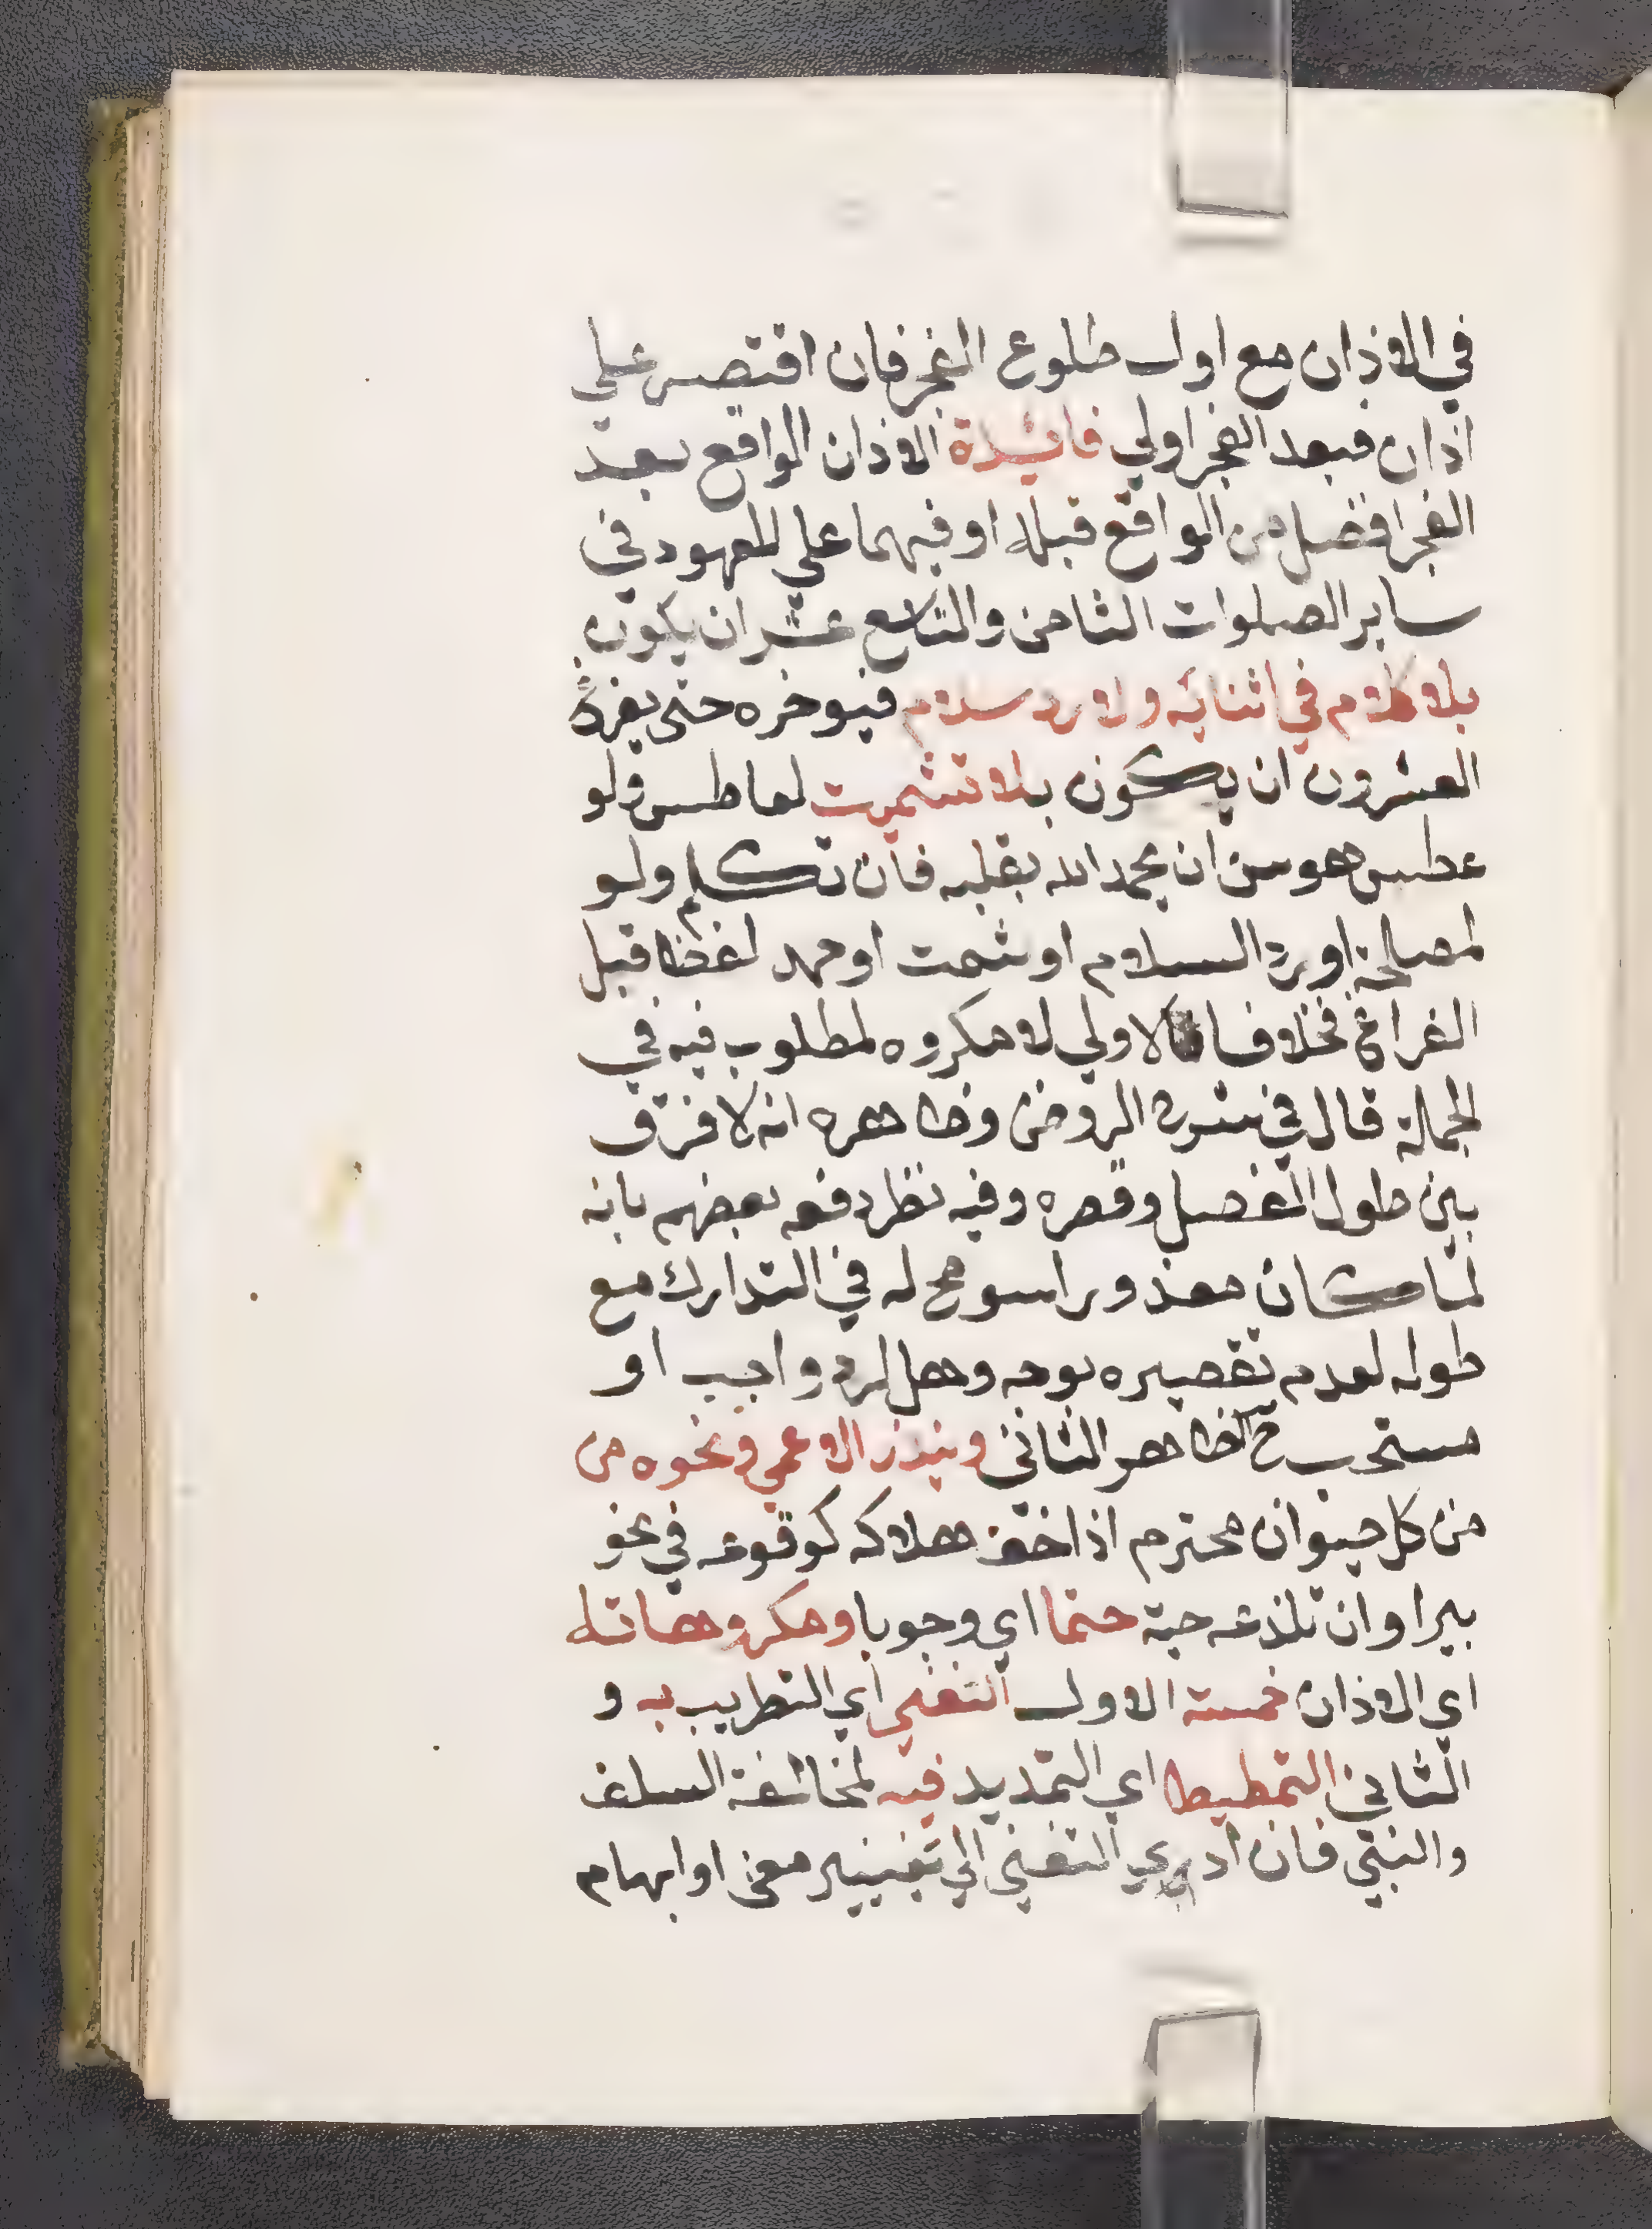 في الاذان مع اول طلوع الفجر فان اقتصر علي
اذان فبعد الفجر اولي فائدة الاذان الواقع بعد
الفجر افضل من الواقع قبله او فيهما علي المعهود في
ساير الصلوات الثامن والتاسع عشر ان يكون
بلا كلام في اثنائه ولا رد سلام فيوخره حتى يفرغ
العشرون ان يكون بلا تشميت لعاطس ولو
عطس هو سن ان يحمد الله بقلبه فان تكلم ولو
لمصلحة او رد السلام او شمت او حمد لفظا قبل
الفراغ فخلاف الاولي لا مكروه لمطلوب فيه في
الجملة قال في شرح الروض وظاهره انه لا فرق
بين طول الفصل وقصره وفيه نظر دفعه بعضهم بانه
لما كان معذورا سومح له في التدارك مع
طوله لعدم تقصيره بوجه وهل الرد واجب او
مستحب ح الظاهر الثاني وينذر الاعمي ونحوه من
من كل حيوان محترم اذا خف هلاكه كوقوعه في نحو
بير او ان تلذعه حية حتما اي وجوبا ومكروهاته
اي الاذان خمسة الاول التغني اي التطريب به و
الثاني التمطيط اي التمديد فيه لمخالفة السلف
والنبي فان ادي التغني الي تغيير معنى او ابهام